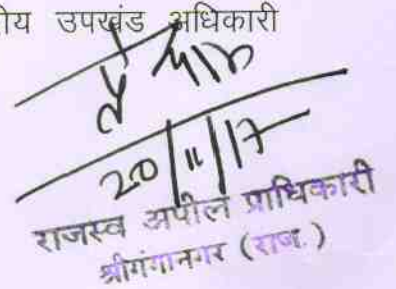 ीय उपखंड अधिकारी
20/11/17
राजस्व अपील प्राधिकारी
श्रीगंगानगर (राज.)